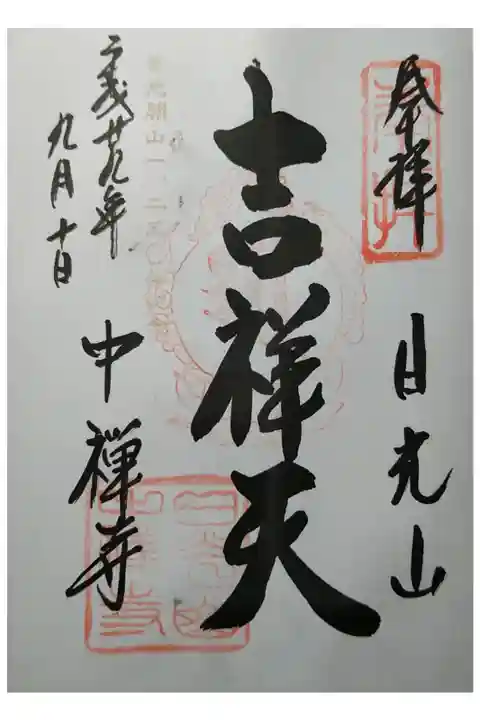 奉拝
日光山
吉祥天
中禅寺
平成廿九年
九月十日